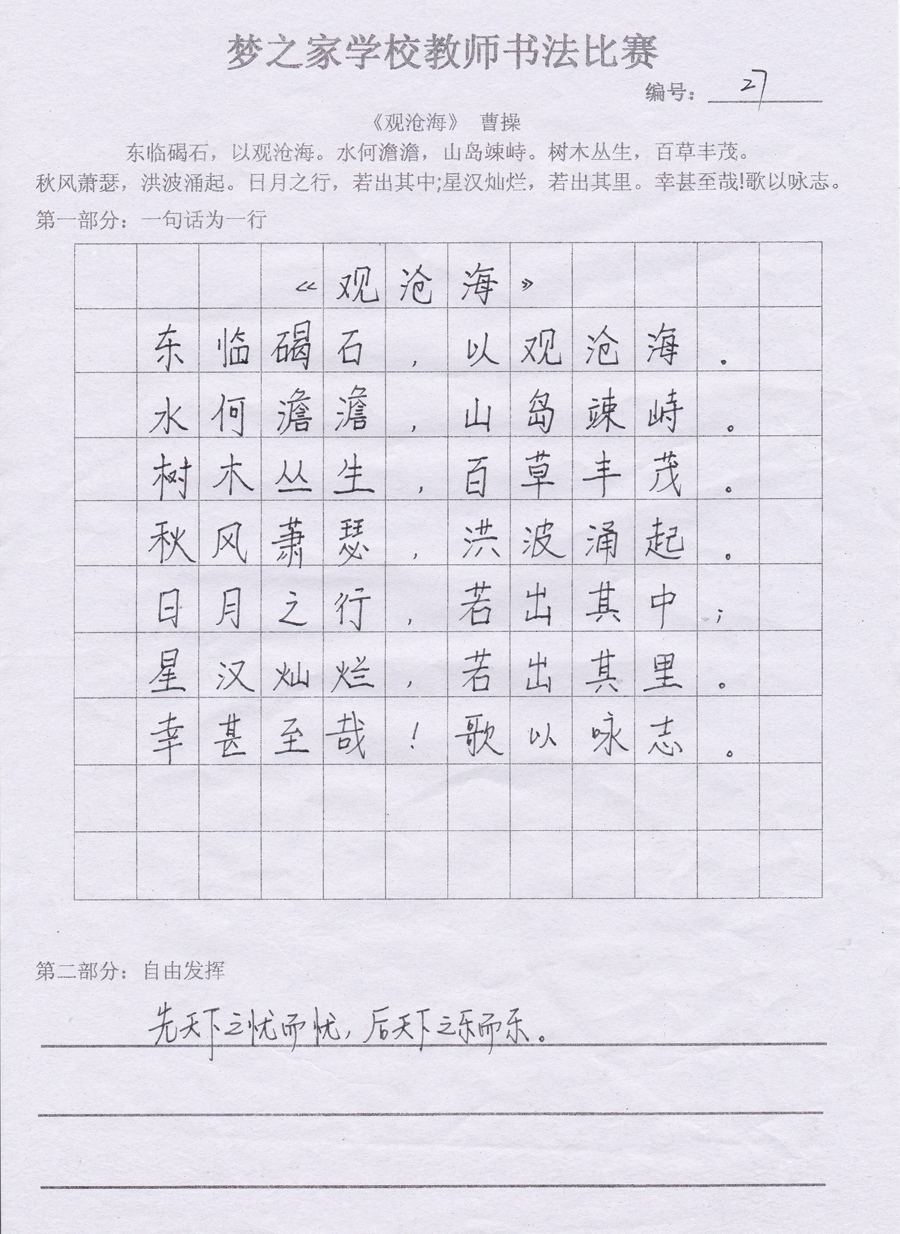 梦之家学校教师书法比赛
编号：27
《观沧海》 曹操
东临碣石，以观沧海。水何澹澹，山岛竦峙。树木丛生，百草丰茂。
秋风萧瑟，洪波涌起。日月之行，若出其中;星汉灿烂，若出其里。幸甚至哉!歌以咏志。
第一部分：一句话为一行
《观沧海》
东临碣石，以观沧海。
水何澹澹，山岛竦峙。
树木丛生，百草丰茂。
秋风萧瑟，洪波涌起。
日月之行，若出其中；
星汉灿烂，若出其里。
幸甚至哉！歌以咏志。
第二部分：自由发挥
先天下之忧而忧，后天下之乐而乐。